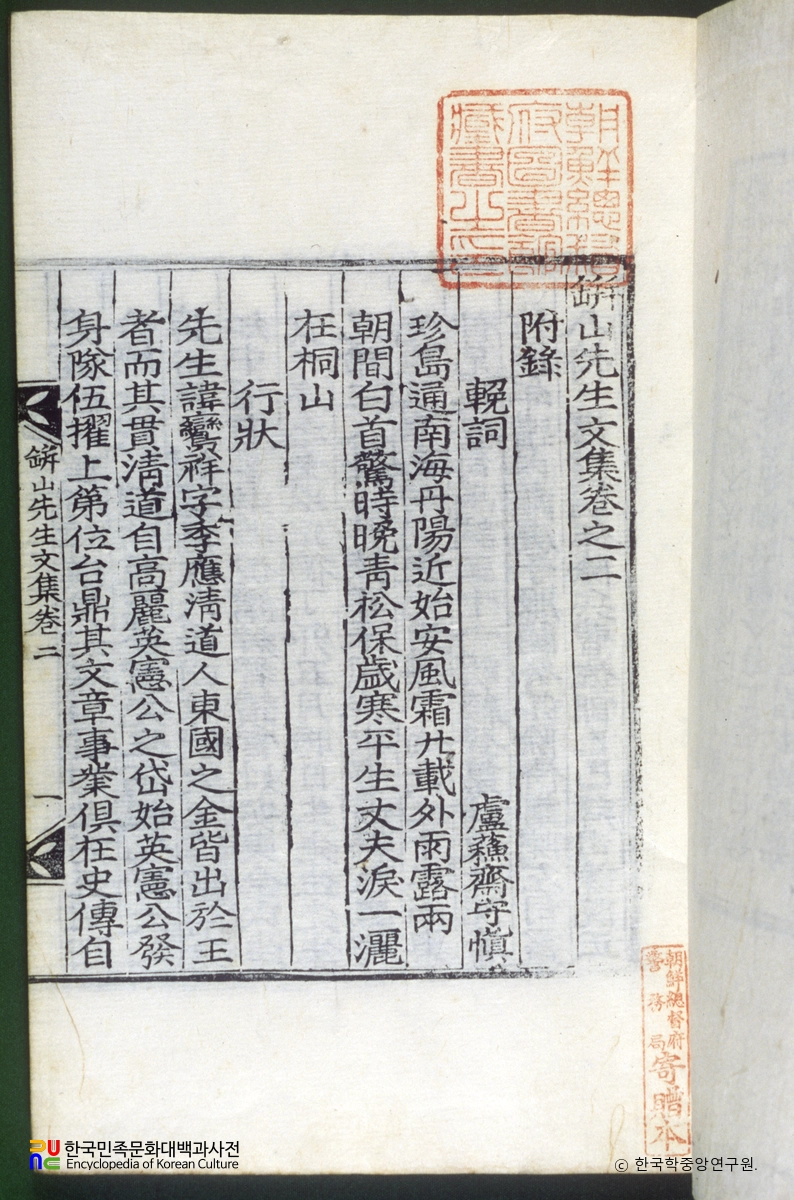 朝鮮總督
府圖書館
藏書之印
缾山先生文集卷之二
附錄
輓詞 盧蘓齋守愼
珍島通南海丹陽近始安風霜廿載外雨露兩
朝間白首驚時晚靑松保歲寒平生丈夫淚一灑
在桐山
行狀
先生諱鸞祥字季應淸道人東國之金皆出於王
者而其貫淸道自高麗英憲公之岱始英憲公發
身隊伍擢上第位台鼎其文章事業俱在史傳自
缾山先生文集卷二 一
朝鮮總督府
警務局
寄贈本
한국민족문화대백과사전
Encyclopedia of Korean Culture
© 한국학중앙연구원.